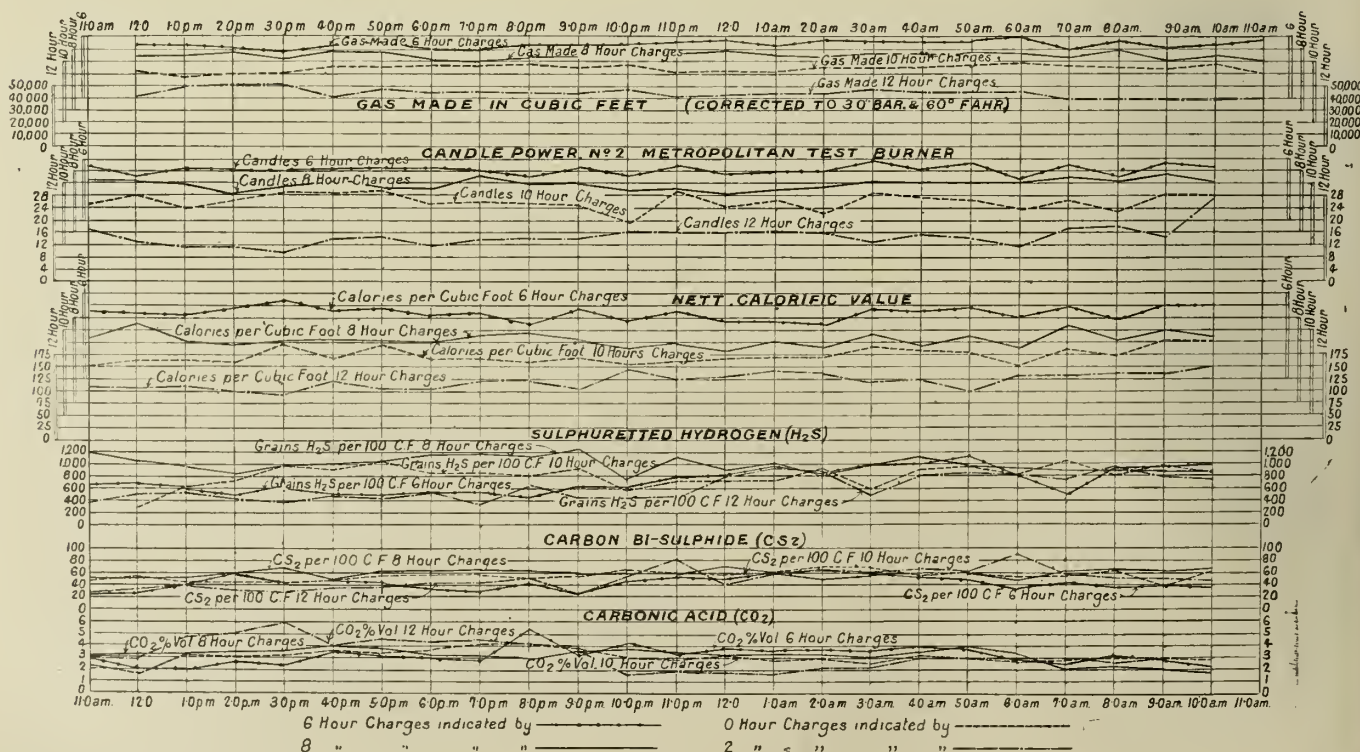 11·0am 12·0 1·0pm 2·0pm 3·0pm 4·0pm 5·0pm 6·0pm 7·0pm 8·0pm 9·0pm 10·0pm 11·0pm 12·0 1·0am 2·0am 3·0am 4·0am 5·0am 6·0am 7·0am 8·0am 9·0am 10am 11·0am
12 Hour
10 Hour
8 Hour
6
6
8 Hour
10 Hour
12 Hour
Gas Made 6 Hour Charges
Gas Made 8 Hour Charges
Gas Made 10 Hour Charges
Gas Made 12 Hour Charges
50,000
40,000
30,000
20,000
10,000
0
GAS MADE IN CUBIC FEET (CORRECTED TO 30 BAR. & 60° FAHR)
50000
40,000
30,000
20,000
10,000
0
CANDLE POWER Nº 2 METROPOLITAN TEST BURNER
12 Hour
10 Hour
8 Hour
6 Hour
6 Hour
8 Hour
10 Hour
12 Hour
Candles 6 Hour Charges
Candles 8 Hour Charges
Candles 10 Hour Charges
Candles 12 Hour Charges
28
24
20
16
12
8
4
0
28
24
20
16
12
8
4
0
NETT. CALORIFIC VALUE
12 Hour
10 Hour
8 Hour
6 Hour
6 Hour
8 Hour
10 Hour
12 Hour
Calories per Cubic Foot 6 Hour Charges
Calories per Cubic Foot 8 Hour Charges
Calories per Cubic Foot 10 Hours Charges
Calories per Cubic Foot 12 Hour Charges
175
150
125
100
75
50
25
0
175
150
125
100
75
50
25
0
SULPHURETTED HYDROGEN (H2S)
Grains H2S per 100 C.F 8 Hour Charges
Grains H2S per 100 C.F 10 Hour Charges
Grains H2S per 100 C.F 6 Hour Charges
Grains H2S per 100 C.F 12 Hour Charges
1,200
1,000
800
600
400
200
0
1200
1000
800
600
400
200
0
CARBON BI-SULPHIDE (CS2)
CS2 per 100 C F 8 Hour Charges
CS2 per 100 C F 10 Hour Charges
CS2 per 100 C F 12 Hour Charges
CS2 per 100 C F 6 Hour Charges
100
80
60
40
20
0
100
80
60
40
20
0
CARBONIC ACID (CO2)
CO2 % Vol 8 Hour Charges
CO2 % Vol 12 Hour Charges
CO2 % Vol 6 Hour Charges
CO2 % Vol. 10 Hour Charges
6
5
4
3
2
1
0
6
5
4
3
2
1
0
11·0am. 12·0 1·0pm 2·0pm 3·0pm 4·0pm 5·0pm 6·0pm 7·0pm 8·0pm 9·0pm 10·0pm 11·0pm 12·0 1·0am. 2·0am 3·0am 4·0am 5·0am. 6·0am 7·0am 8·0am. 9·0am. 10·0am. 11·0am.
6 Hour Charges indicated by
0 Hour Charges indicated by
8 " " " "
2 " " " "